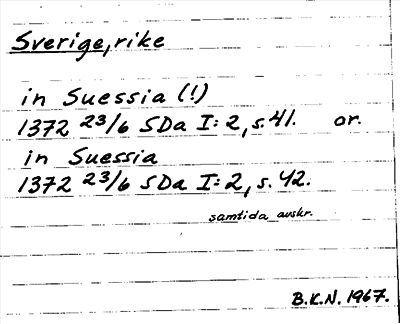 Sverige, rike
in Suessia (!)
1372 23/6 SDa I:2, s.41. or.
in Suessia
1372 23/6 SDa I:2, s.42.
samtida avskr.
B.K.N. 1967.